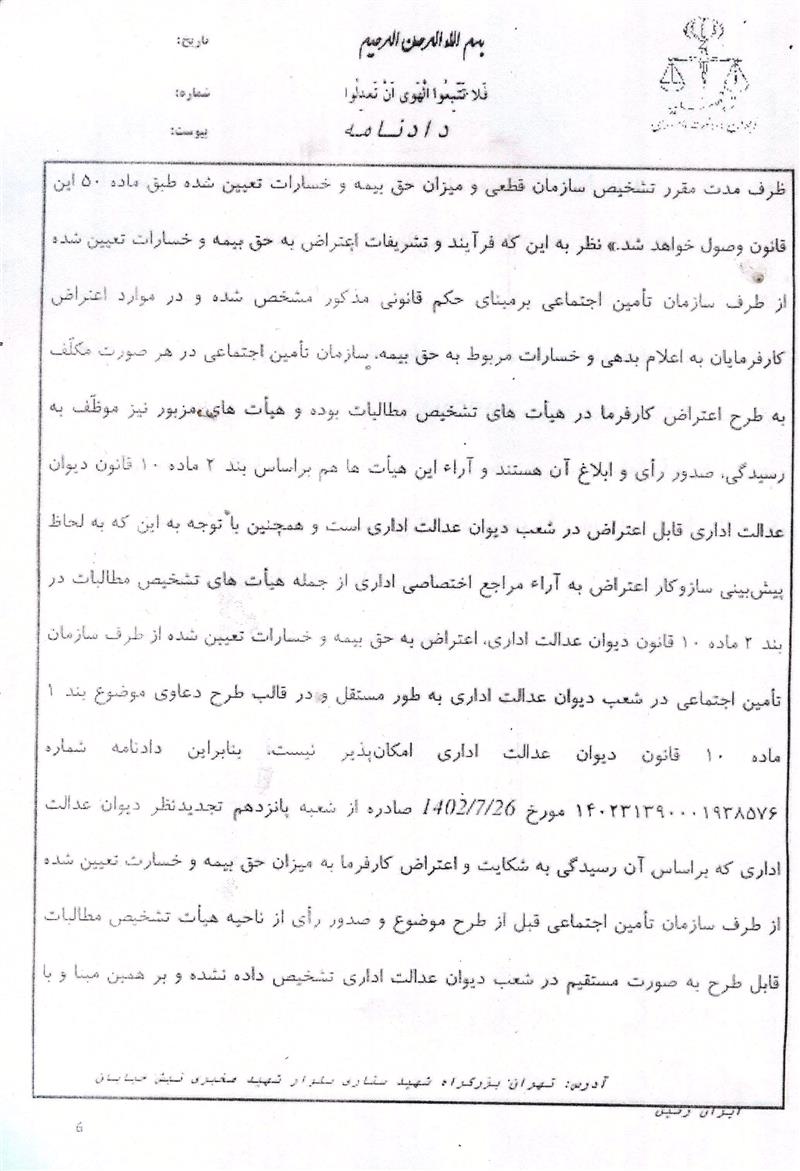 بسم الله الرحمن الرحیم
تاریخ:
فَلا تَتَّبِعُوا الْهَوی أنْ تَعدِلُوا
شماره:
دادنامه
پیوست:
ظرف مدت مقرر تشخیص سازمان قطعی و میزان حق بیمه و خسارات تعیین شده طبق ماده ۵۰ این
قانون وصول خواهد شد.» نظر به این که فرآیند و تشریفات اعتراض به حق بیمه و خسارات تعیین شده
از طرف سازمان تأمین اجتماعی برمبنای حکم قانونی مذکور مشخص شده و در موارد اعتراض
کارفرمایان به اعلام بدهی و خسارات مربوط به حق بیمه، سازمان تأمین اجتماعی در هر صورت مکلّف
به طرح اعتراض کارفرما در هیأت های تشخیص مطالبات بوده و هیأت های مزبور نیز موظّف به
رسیدگی، صدور رأی و ابلاغ آن هستند و آراء این هیأت ها هم براساس بند ۲ ماده ۱۰ قانون دیوان
عدالت اداری قابل اعتراض در شعب دیوان عدالت اداری است و همچنین با توجه به این که به لحاظ
پیش‌بینی سازوکار اعتراض به آراء مراجع اختصاصی اداری از جمله هیأت های تشخیص مطالبات در
بند ۲ ماده ۱۰ قانون دیوان عدالت اداری، اعتراض به حق بیمه و خسارات تعیین شده از طرف سازمان
تأمین اجتماعی در شعب دیوان عدالت اداری به طور مستقل و در قالب طرح دعاوی موضوع بند ۱
ماده ۱۰ قانون دیوان عدالت اداری امکان‌پذیر نیست، بنابراین دادنامه شماره
۱۴۰۲۳۱۳۹۰۰۰۱۹۳۸۵۷۶ مورخ 1402/7/26 صادره از شعبه پانزدهم تجدیدنظر دیوان عدالت
اداری که براساس آن رسیدگی به شکایت و اعتراض کارفرما به میزان حق بیمه و خسارت تعیین شده
از طرف سازمان تأمین اجتماعی قبل از طرح موضوع و صدور رأی از ناحیه هیأت تشخیص مطالبات
قابل طرح به صورت مستقیم در شعب دیوان عدالت اداری تشخیص داده نشده و بر همین مبنا و با
آدرس: تهران بزرگراه شهید ستاری بلوار شهید مخبری نبش خیابان
ایران زمین
6